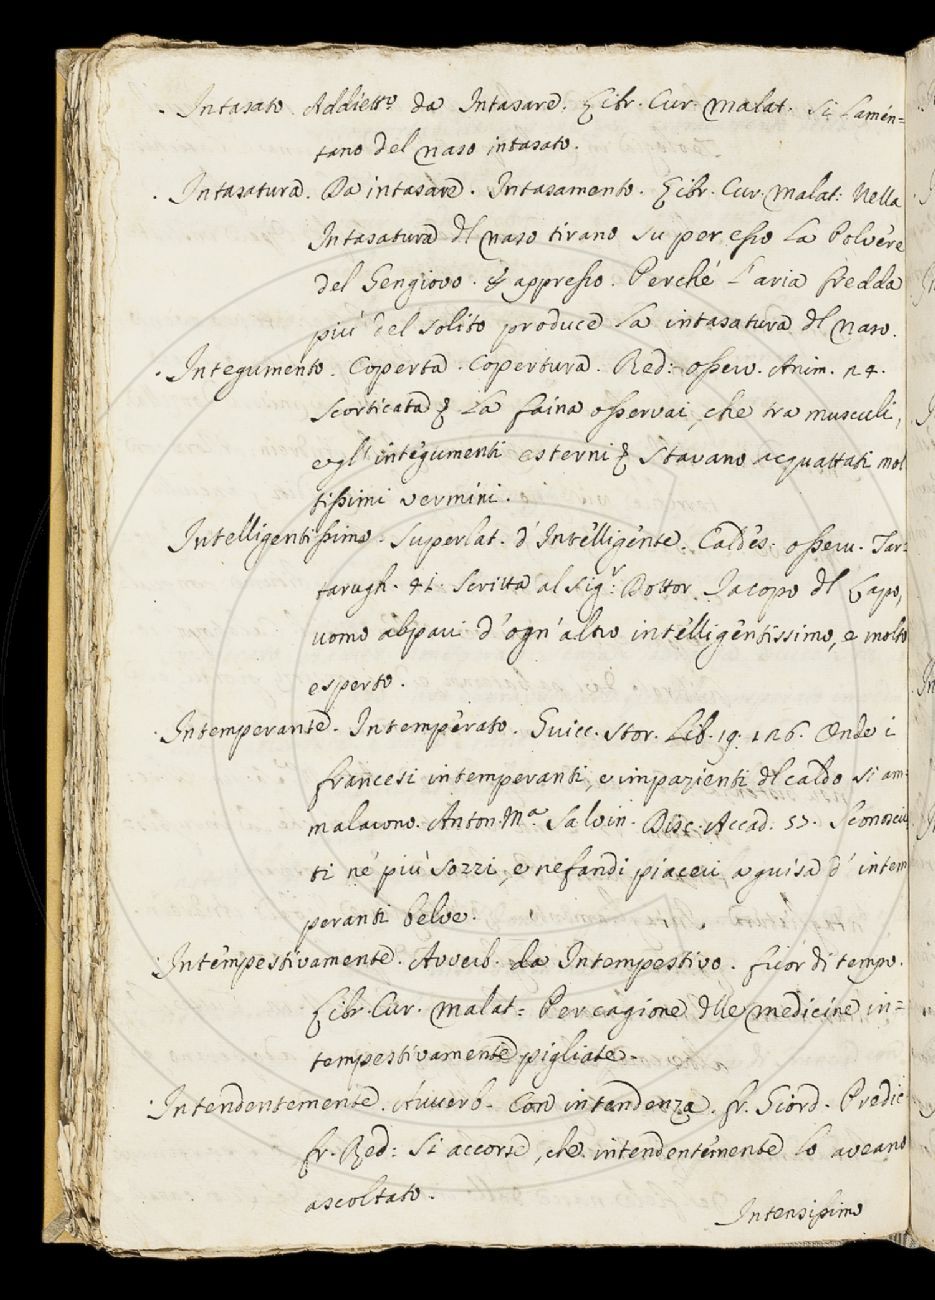 . Intasato. Addiett.º da Intasare. Libr. Cur. malat. Si lamen=
tano del naso intasato.
. Intasatura. Da intasare. Intasamento. Libr. Cur. Malat: Nella
Intasatura dl naso tirano su per esso la Polvere
del Gengiovo. & appresso. Perché l'aria fredda
più del solito produce la intasatura dl naso.
. Integumento. Coperta. Copertura. Red: osserv. Anim. n 4.
Scorticata la faina osservai, che tra musculi,
e gl'integumenti esterni stavano acquattati mol
tissimi vermini.
Intelligentissimo. Superlat. d'Intelligente. Caldes. osseru. Tar=
tarugh. 41. Scritta al Sig.r Dottor Jacopo dl Lapo,
uomo al pari d'ogn'altro intelligentissimo, e molto
esperto.
. Intemperante. Intemperato. Guicc. Stor. Lib. 19. 126. Onde i
francesi intemperanti, e impazienti dl caldo si am=
malavono. Anton. M.a Salvin. Disc. Accad. 57. Sconosciu
ti né più sozzi, e nefandi piaceri, a guisa d'intem
peranti belve.
. Intempestivamente. Avverb. da Intempestivo. fuor di tempo.
Libr. Cur. malat= Per cagione dlle medicine in=
tempestivamente pigliate.
. Intendentemente. Avverb. Con intendenza. fr. Giord. Predic
fr. Red: Si accorse, che intendentemente lo aveano
ascoltato.
Intensissimo